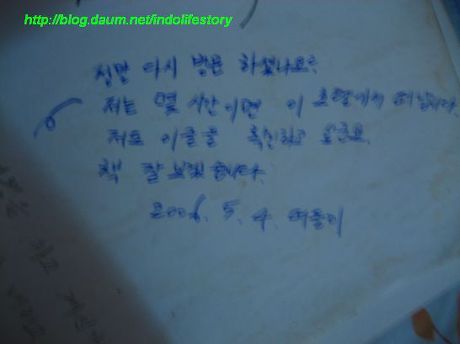 http://blog.daum.net/indolifestory
정말 다시 방문 하셨나요?
저는 몇 시간이면 이 호텔에서 떠납니다.
저도 이 글을 확인하고
책 잘 보겠습니다.
2006. 5. 4. 떠돌이